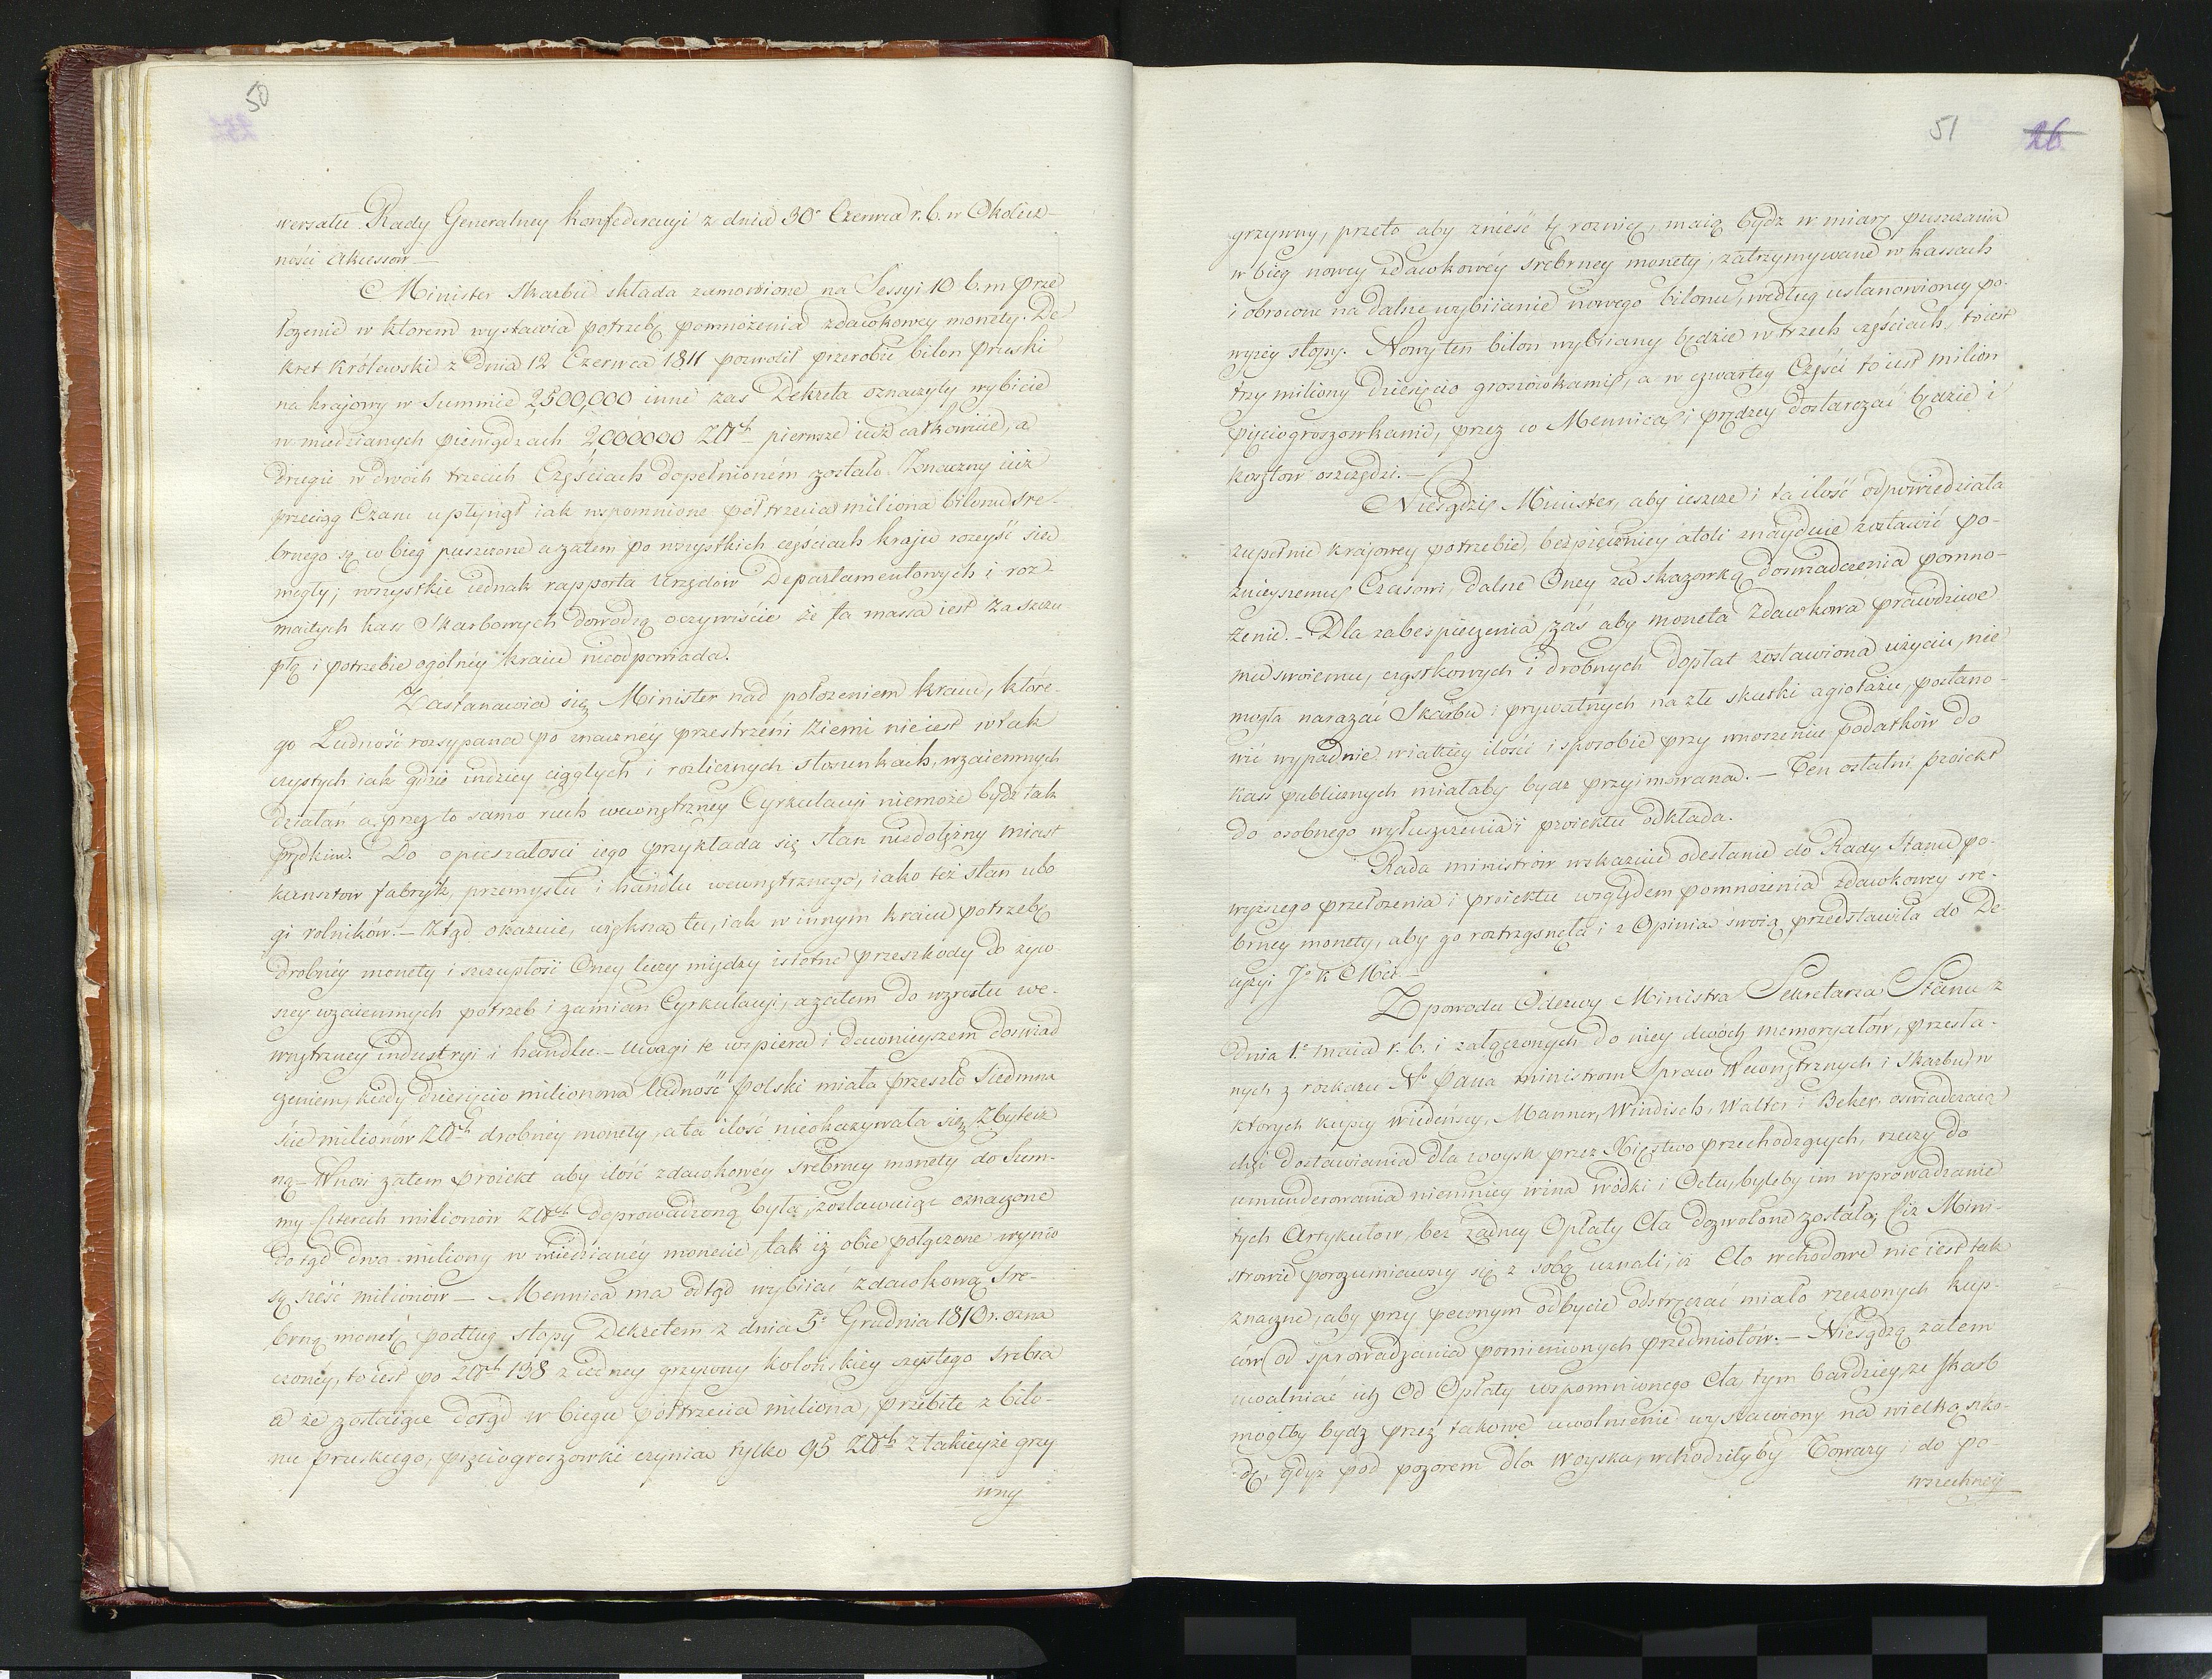 50
wersału Rady Generalney Konfederacyi z dnia 30º Czerwca r. b. w Okolicz-
ności Akcessów —
Minister Skarbu składa zamówione na Sessyi 10 b. m prze
łożenie w ktorem wystawia potrzebę pomnożenia zdawkowey monety. De
kret Królewski z dnia 12 Czerwca 1811 pozwolił przerobić bilon Pruski
na krajowy w Summie 2,500,000 inne zaś Dekreta oznaczyły wybicie
w miedzianych pieniądzach 2,000000 Złłh pierwsze iuż całkowicie, a
drugie w dwóch trzecich Częściach dopełnioném zostało. Znaczny iuż
przeciąg Czasu upłynął iak wspomnione pół trzecia miliona bilonu sre-
brnego są w bieg puszczone a zatem po wszystkich częściach kraju rozeyść się
mogły; wszystkie iednak rapporta Urzędów Departamentowych i roz-
maitych kass Skarbowych dowodzą oczywiście że ta massa iest za szczu
płą i potrzebie ogólnéy kraiu nieodpowiada.
Zastanawia się Minister nad położeniem kraiu, które-
go Ludność rozsypana po znacznéy przestrzeni Ziemi nie iest w tak
czystych iak gdzie indziey ciągłych i rozlicznych stosunkach, wzaiemnych
działań a przez to samo ruch wewnętrzney Cyrkulacyi niemoże bydź tak
prędkim. Do opieszałości iego przykłada się stan niedołężny miast
kunsztow fabryk, przemysłu i handlu wewnętrznego, iako też stan ubo
gi rolników. — Ztąd okazuie, większa tu, iak w innym kraiu potrzebę
drobnéy monety i szczupłość Oney liczy między istotne przeszkody do żyw-
szey wzaiemnych potrzeb i zamian Cyrkulacyi, a zatem do wzrostu we-
wnętrzney industryi i handlu. — Uwagi te wspiera i dawnieyszem doswiad
czeniem, kiedy dziesięcio milionowa ludność Polski miała przeszło siedmna
ście milionów Złłh drobnéy monety, a ta ilość nieokazywała się Zbytecz
ną — Wnosi zatem proiekt aby ilość zdawkowéy srebrney monety do Sum-
my czterech milionów Złłh doprowadzoną była, zostawuiąc oznaczone
dotąd dwa miliony w miedzianéy monecie, tak iż obie połączone wynio
są sześć milionów — Mennica ma odtąd wybiiać zdawkową Sre-
brną monetę podług stopy Dekretem z dnia 5º Grudnia 1810 r. ozna
czonéy, to iest po Złłh 138 z iedney grzywny kolońskiey czystego srebra
a że zostaiące dotąd w biegu półtrzecia miliona, przebite z bilo-
nu pruskiego, pięciogroszowki czynia tylko 95 Złłh z takieyże grzy
wny
51 26
grzywny, przeto aby znieść tę roznicę, maią bydz w miarę puszczania
w bieg nowey zdawkowéy srebrney monety, zatrzymywane w kassach
i obrocone na dalsze wybiianie nowego bilonu, według ustanowioney po-
wyżey stopy. Nowy ten bilon wybiiany będzie w trzech częściach, to iest
trzy miliony dziesięcio groszówkami, a w czwartey Części to iest milion
pięciogroszowkami, przez co Mennica i prędzey dostarczać będzie i
kosztow oszczędzi. —
Niesądzi Minister, aby ieszcze i ta ilość odpowiedziała
zupełnie krajowey potrzebie, bezpieczniéy atoli znayduie zostawić po-
znieyszemu Czasowi, dalsze Oney za skazowką doswiadczenia pomno-
żenie. — Dla zabespieczenia zaś aby moneta Zdawkowa prawdziwe
mu swoiemu, cząstkowych i drobnych dopłat zostawiona użyciu, nie
mogła narażać Skarbu i prywatnych na złe skutki agiotażu, postano-
wić wypadnie w iakiéy ilości i sposobie przy wnoszeniu podatków do
kass publicznych miałaby bydz przyimowana. — Ten ostatni proiekt
do osobnego wyłuszczenia i proiektu odkłada.
Rada ministrów wskazuie odesłanie do Rady Stanu po-
wyższego przełożenia i proiektu względem pomnożenia zdawkowey sre-
brney monety, aby go roztrząsnęła i z Opinia swoią przedstawiła do De-
cyzyi Jº K Mci. —
Zpowodu Odezwy Ministra Sekretarza Stanu z
dnia 1º maia r. b. i załączonych do niey dwóch memoryałów, przesła-
nych z rozkazu N. Pana ministrom Spraw Wewnętrznych i Skarbu, w
ktorych kupcy wiedeńscy, Manner, Windisch, Walter i Beker, oswiadczaią
chęć dostawiania dla woysk przez Xięstwo przechodzących, rzeczy do
umunderowania niemniey wina wódki i Octu, byleby im wprowadzanie
tych Artykułow, bez żadney Opłaty Cła dozwolone zostało; Ciż Mini-
strowie porozumiawszy się z sobą uznali, iż Cło wchodowe nie iest tak
znaczne, aby przy pewnym odbycie odstręczać miało rzeczonych kup-
ców od sprowadzania pomienionych przedmiotów. — Niesądzą zatem
uwalniać ich Od Opłaty wspomnionego Cła, tym bardziey, że Skarb
mogłby bydz przez takowe uwolnienie wystawiony na wielką szko-
dę, gdyz pod pozorem dla Woyska, wchodziłyby Towary i do po-
wszechney